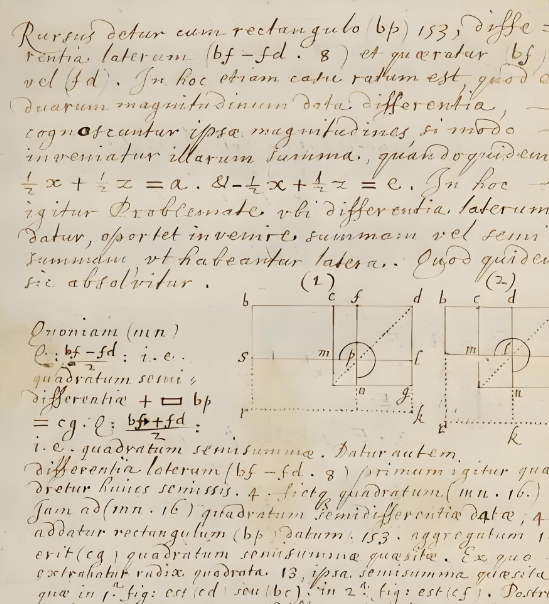 Rursus detur cum rectangulo (bp) 153, diffe =
rentia laterum (bf - fd . 8) et quæratur (bf)
vel (fd). In hoc etiam casu ratum est quod
duarum magnitudinum data differentia,
cognoscantur ipsæ magnitudines, si modo
inveniatur illarum summa, quandoquidem
½ x + ½ z = a . & - ½ x + ½ z = e . In hoc
igitur Problemate vbi differentia laterum
datur, oportet invenire summam vel semi
summam vt habeantur latera . Quod quidem
sic absolvitur .
(1) (2)
b c f d b c d
s m p l m f
n g n
r k r k
Quoniam (mn)
Q : bf - fd / 2 : i . e .
quadratum semi =
differentiæ + ▭ bp
= cg . Q : bf + fd / 2 :
i . e . quadratum semisummæ . Datur autem
differentia laterum (bf - fd . 8) primum igitur qua
dretur huius semissis . 4 . fietq quadratum (mn . 16 .)
Jam ad (mn . 16) quadratum semidifferentiæ datæ, 4
addatur rectangulum (bp) datum, 153 . aggregatum 1
erit (cg) quadratum semisummæ quæsitæ . Ex quo
extrahatur radix quadrata 13, ipsa semisumma quæsita
quæ in 1ª fig : est (cd) seu (bc) . in 2ª fig : est (cf) . Postr